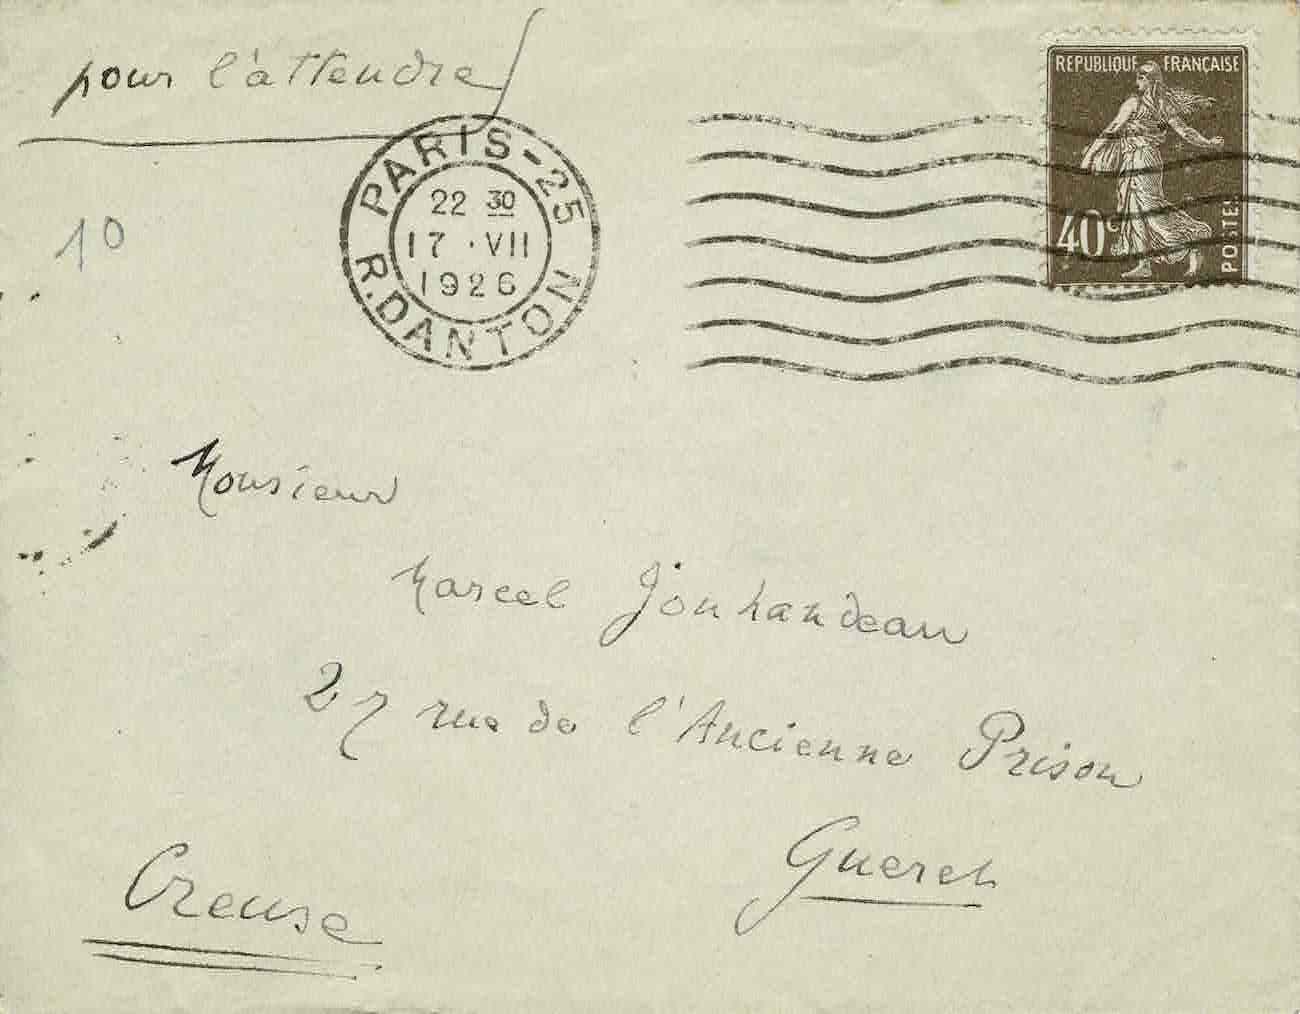 pour l'attendre
REPUBLIQUE FRANÇAISE
40c
POSTES
PARIS-25
22 30
17 · VII
1926
R. DANTON
10
Monsieur
Marcel Jouhandeau
27 rue de l'Ancienne Prison
Gueret
Creuse